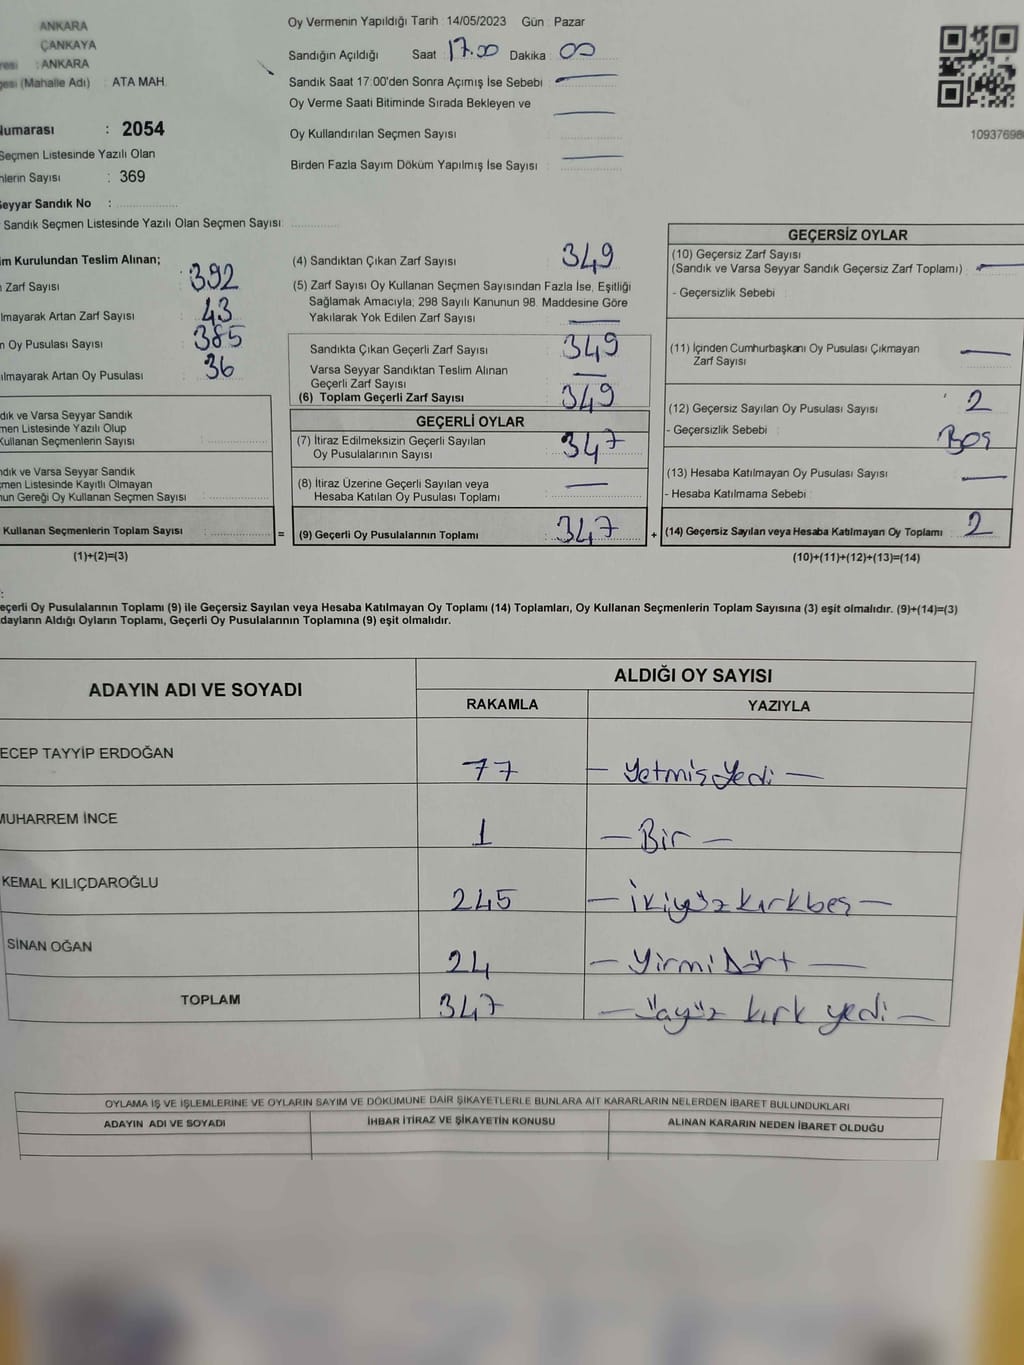 ANKARA
ÇANKAYA
: ANKARA
(Mahalle Adı) : ATA MAH.
Numarası : 2054
Seçmen Listesinde Yazılı Olan
Sayısı : 369
Seyyar Sandık No :
Sandık Seçmen Listesinde Yazılı Olan Seçmen Sayısı
Oy Vermenin Yapıldığı Tarih : 14/05/2023 Gün : Pazar
Sandığın Açıldığı Saat 17.00 Dakika : 00
Sandık Saat 17:00'den Sonra Açımış İse Sebebi : —
Oy Verme Saati Bitiminde Sırada Bekleyen ve
Oy Kullandırılan Seçmen Sayısı —
Birden Fazla Sayım Döküm Yapılmış İse Sayısı : —
10937698
Kurulundan Teslim Alınan;
Zarf Sayısı : 392
Artan Zarf Sayısı : 43
Oy Pusulası Sayısı : 385
Artan Oy Pusulası : 36
ve Varsa Seyyar Sandık
Listesinde Yazılı Olup
Kullanan Seçmenlerin Sayısı :
ve Varsa Seyyar Sandık
Listesinde Kayıtlı Olmayan
Gereği Oy Kullanan Seçmen Sayısı :
Kullanan Seçmenlerin Toplam Sayısı : =
(1)+(2)=(3)
(4) Sandıktan Çıkan Zarf Sayısı : 349
(5) Zarf Sayısı Oy Kullanan Seçmen Sayısından Fazla İse, Eşitliği
Sağlamak Amacıyla; 298 Sayılı Kanunun 98. Maddesine Göre
Yakılarak Yok Edilen Zarf Sayısı : —
Sandıkta Çıkan Geçerli Zarf Sayısı : 349
Varsa Seyyar Sandıktan Teslim Alınan
Geçerli Zarf Sayısı : —
(6) Toplam Geçerli Zarf Sayısı : 349
GEÇERLİ OYLAR
(7) İtiraz Edilmeksizin Geçerli Sayılan
Oy Pusulalarının Sayısı : 347
(8) İtiraz Üzerine Geçerli Sayılan veya
Hesaba Katılan Oy Pusulası Toplamı : —
(9) Geçerli Oy Pusulalarının Toplamı : 347 +
GEÇERSİZ OYLAR
(10) Geçersiz Zarf Sayısı
(Sandık ve Varsa Seyyar Sandık Geçersiz Zarf Toplamı) : —
- Geçersizlik Sebebi :
(11) İçinden Cumhurbaşkanı Oy Pusulası Çıkmayan
Zarf Sayısı : —
(12) Geçersiz Sayılan Oy Pusulası Sayısı : 2
- Geçersizlik Sebebi : Boş
(13) Hesaba Katılmayan Oy Pusulası Sayısı : —
- Hesaba Katılmama Sebebi :
(14) Geçersiz Sayılan veya Hesaba Katılmayan Oy Toplamı : 2
(10)+(11)+(12)+(13)=(14)
Oy Pusulalarının Toplamı (9) ile Geçersiz Sayılan veya Hesaba Katılmayan Oy Toplamı (14) Toplamları, Oy Kullanan Seçmenlerin Toplam Sayısına (3) eşit olmalıdır. (9)+(14)=(3)
Aldığı Oyların Toplamı, Geçerli Oy Pusulalarının Toplamına (9) eşit olmalıdır.
ADAYIN ADI VE SOYADI ALDIĞI OY SAYISI
RAKAMLA YAZIYLA
ECEP TAYYİP ERDOĞAN 77 — Yetmiş Yedi —
MUHARREM İNCE 1 — Bir —
KEMAL KILIÇDAROĞLU 245 — İkiyüz kırkbeş —
SİNAN OĞAN 24 — Yirmi Dört —
TOPLAM 347 — Üçyüz kırk yedi —
OYLAMA İŞ VE İŞLEMLERİNE VE OYLARIN SAYIM VE DÖKÜMÜNE DAİR ŞİKAYETLERLE BUNLARA AİT KARARLARIN NELERDEN İBARET BULUNDUKLARI
ADAYIN ADI VE SOYADI İHBAR İTİRAZ VE ŞİKAYETİN KONUSU ALINAN KARARIN NEDEN İBARET OLDUĞU